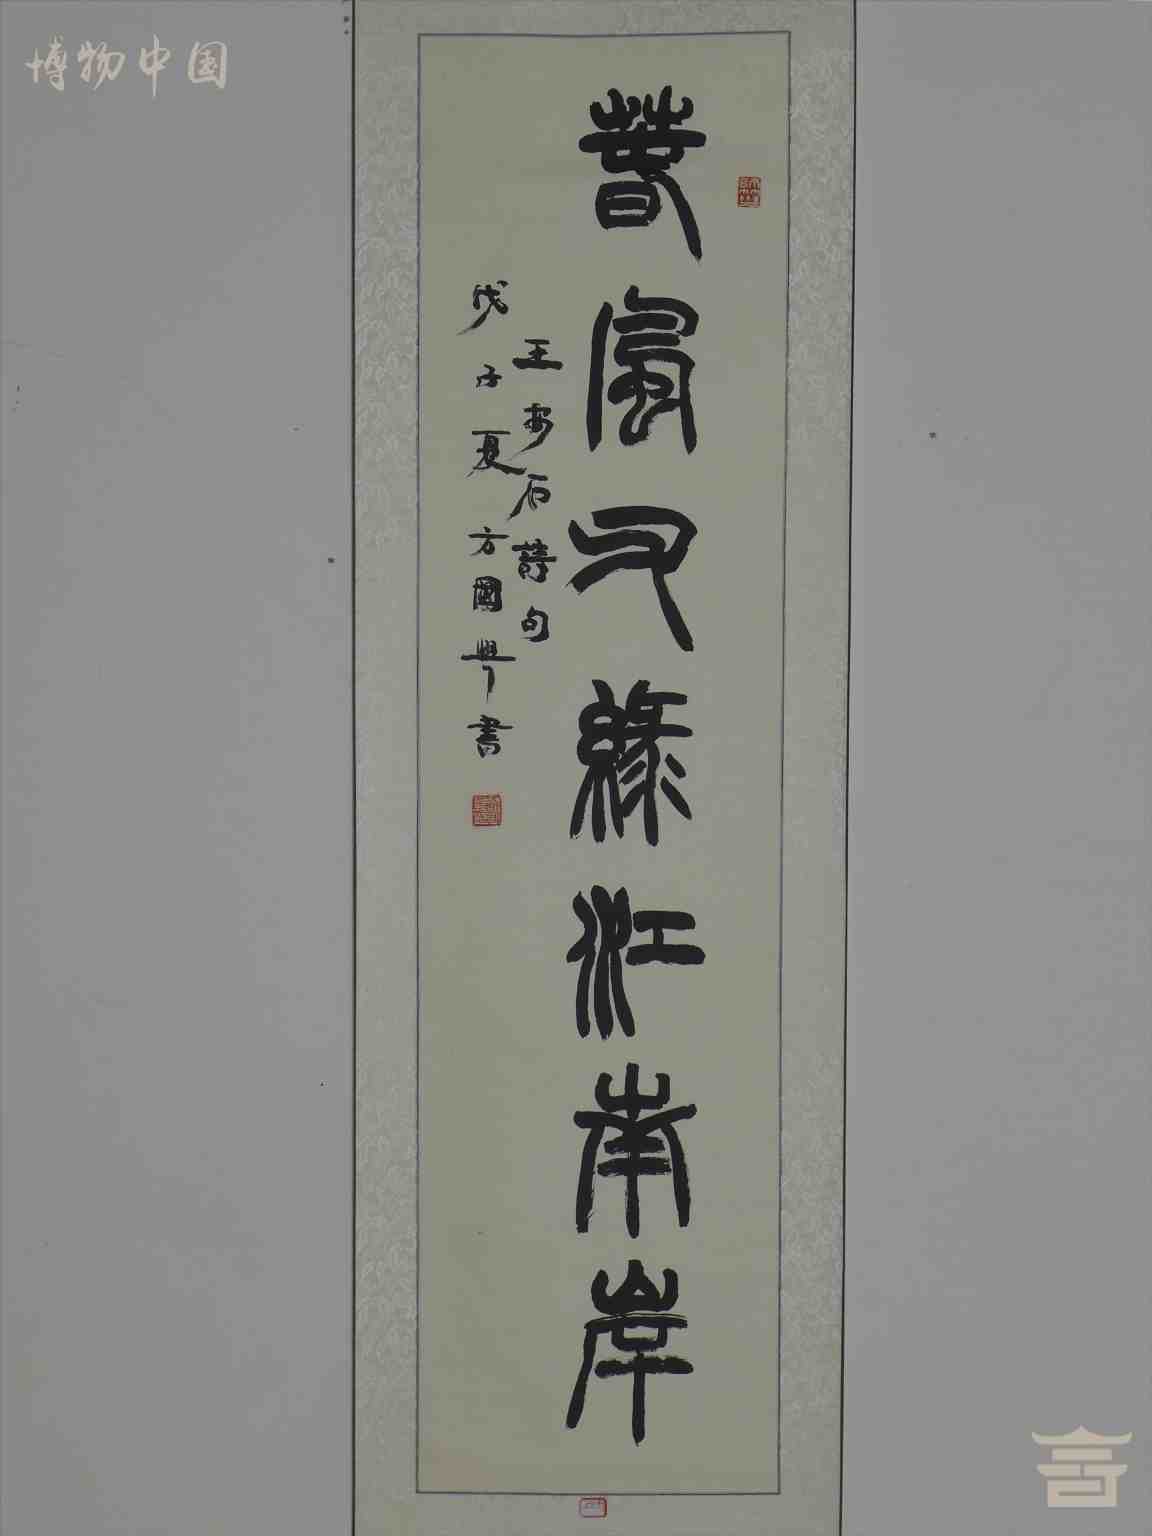 博物中国
春風又緑江南岸
王安石詩句
戊子夏方國興書